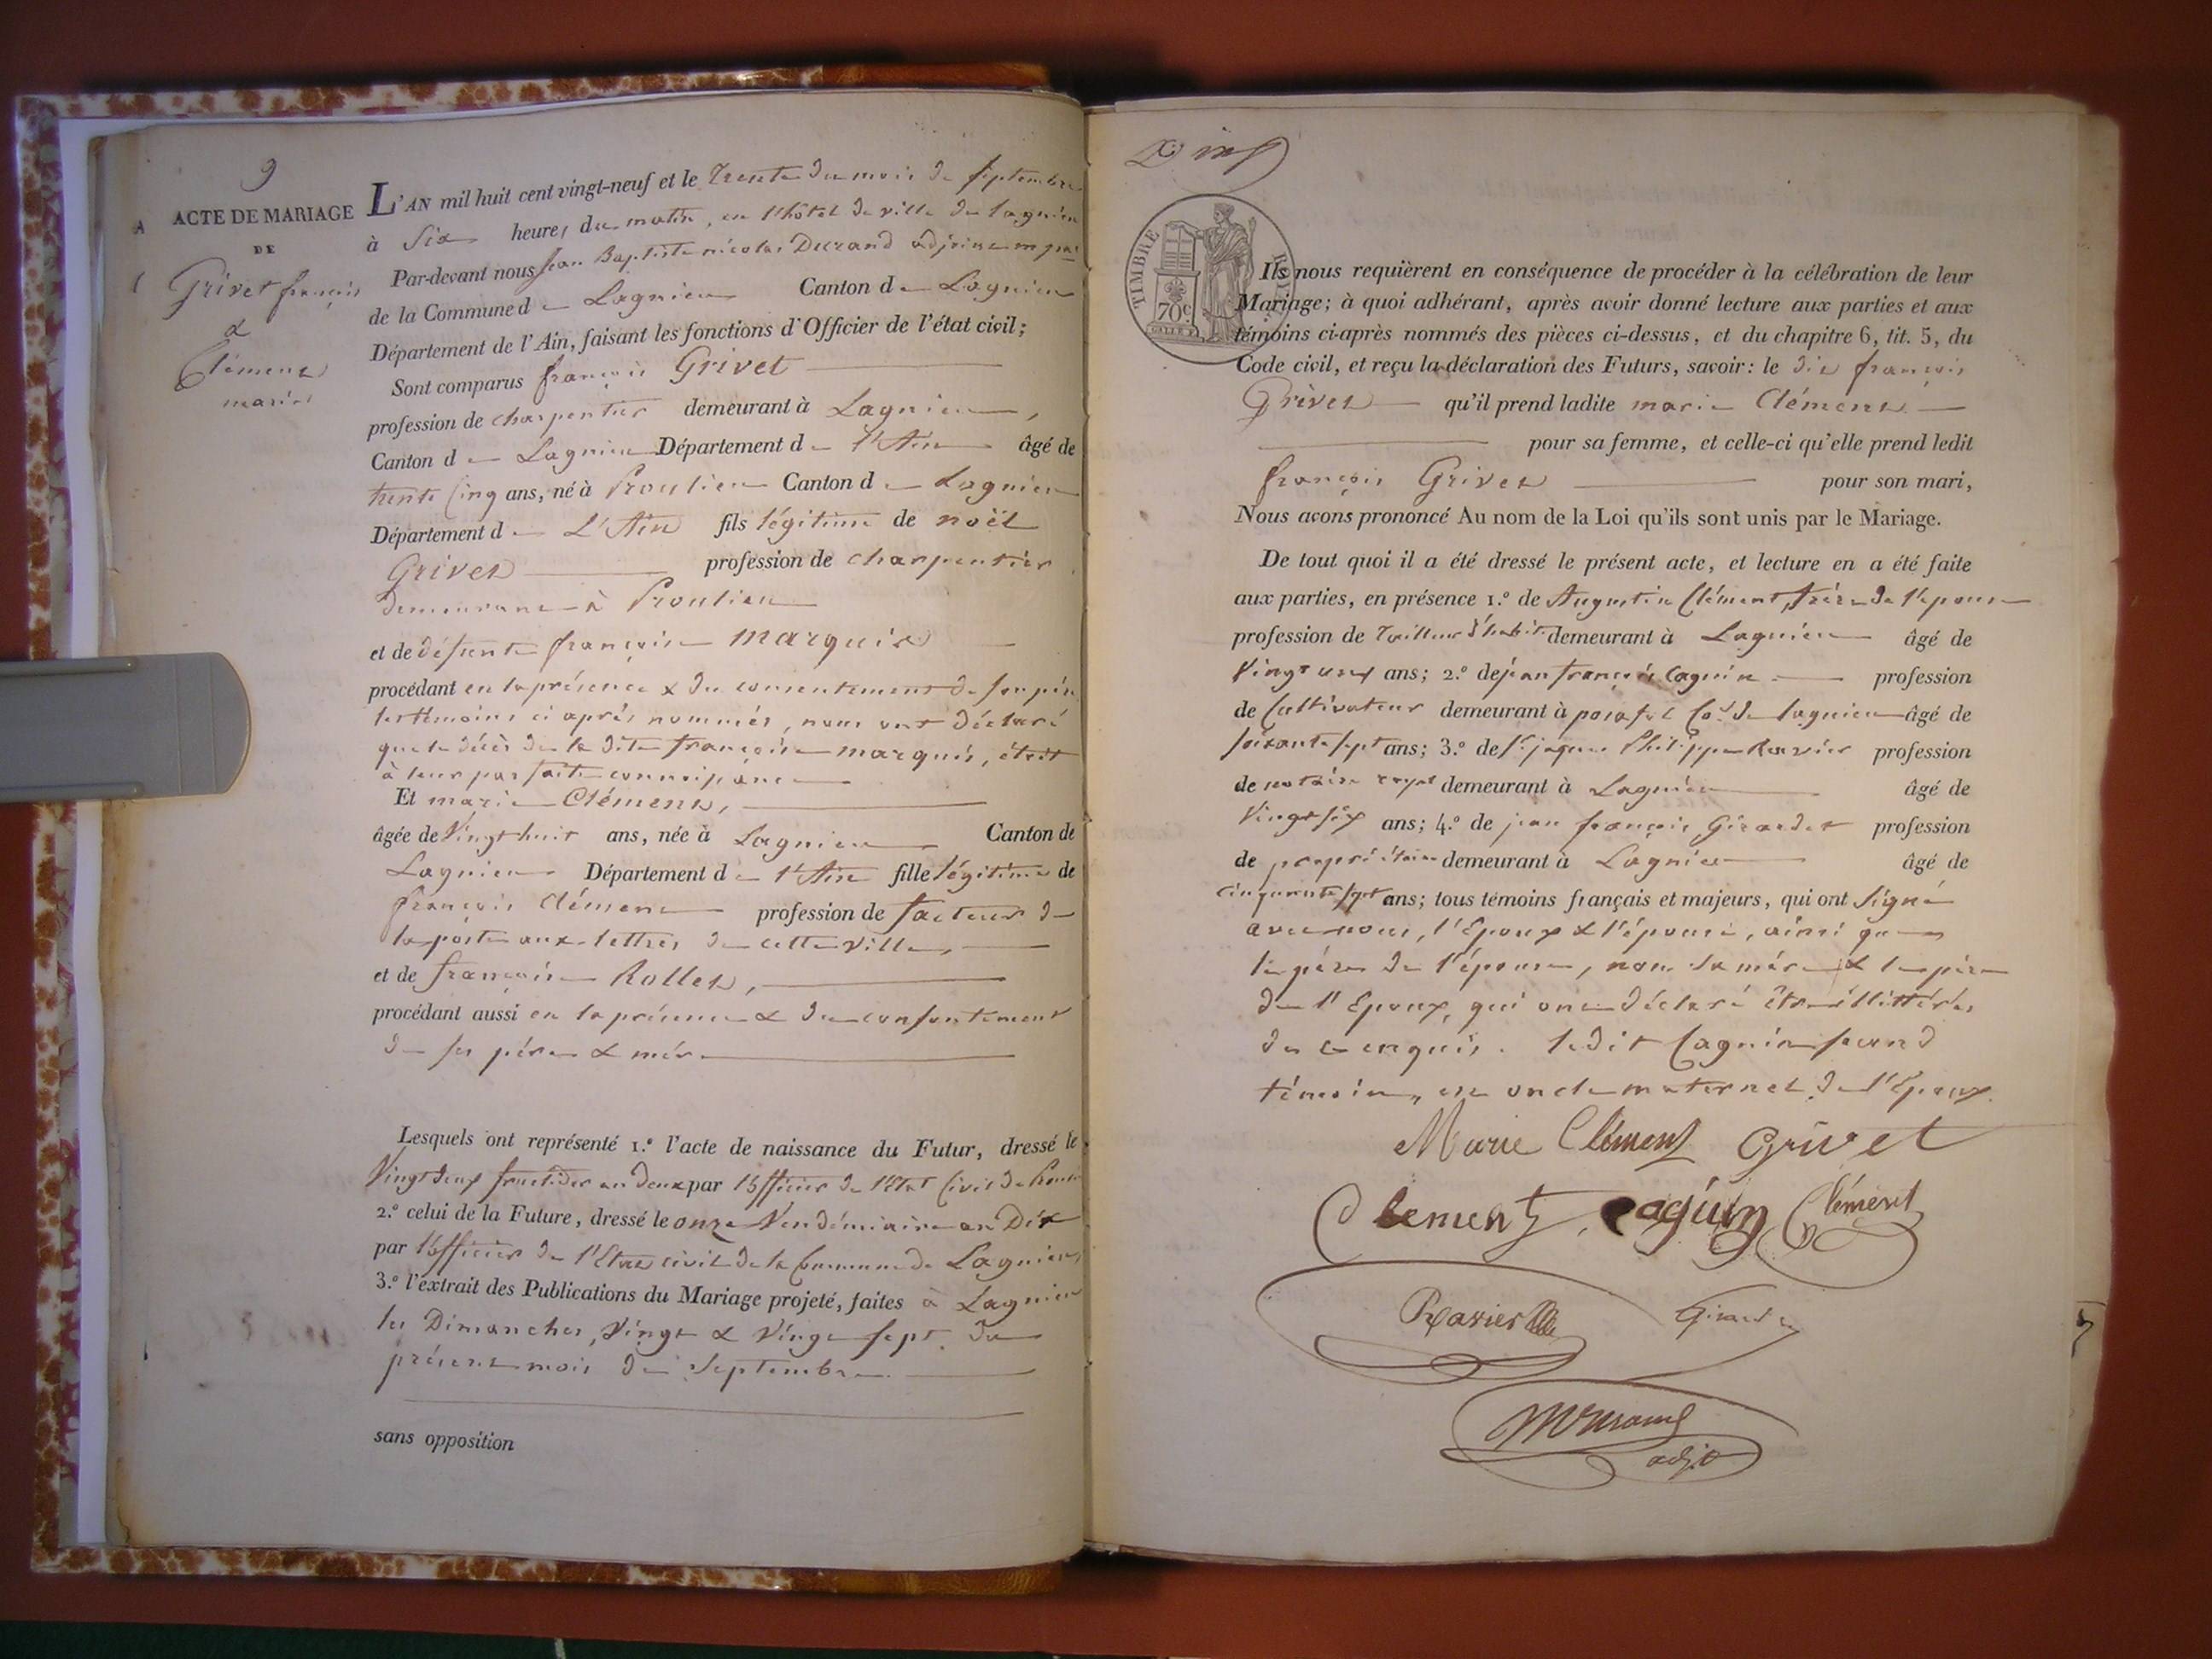 9
ACTE DE MARIAGE
DE
Grivet françois
&
Clément
marie
L'AN mil huit cent vingt-neuf et le trente du mois de septembre
à Six heures du matin, en l'hôtel de ville de Lagnieu
Par-devant nous Jean Baptiste nicolas Durand adjoint
de la Commune de Lagnieu Canton de Lagnieu
Département de l'Ain, faisant les fonctions d'Officier de l'état civil;
Sont comparus françois Grivet
profession de charpentier demeurant à Lagnieu,
Canton de Lagnieu Département de l'Ain âgé de
trente cinq ans, né à Proulieu Canton de Lagnieu
Département de L'Ain fils légitime de noël
Grivet profession de charpentier
demeurant à Proulieu
et de défunte françoise Marquis
procédant en la présence & du consentement de son père
les témoins ci après nommés, nous ont déclaré
que le décès de la dite françoise marquis, étoit
à leur parfaite connoissance
Et marie Clément,
âgée de Vingt huit ans, née à Lagnieu Canton de
Lagnieu Département de l'Ain fille légitime de
françois Clément profession de facteur de
la poste aux lettres de cette ville,
et de françoise Rollet,
procédant aussi en la présence & du consentement
de ses père & mère
Lesquels ont représenté 1.º l'acte de naissance du Futur, dressé le
Vingt deux fructidor an deux par l'officier de l'Etat Civil de
2.º celui de la Future, dressé le onze Vendémiaire an Dix
par l'officier de l'Etat civil de la Commune de Lagnieu,
3.º l'extrait des Publications du Mariage projeté, faites à Lagnieu
les Dimanches, Vingt & Vingt sept du
présent mois de Septembre.
sans opposition
TIMBRE ROYAL
70 c.
Ils nous requièrent en conséquence de procéder à la célébration de leur
Mariage; à quoi adhérant, après avoir donné lecture aux parties et aux
témoins ci-après nommés des pièces ci-dessus, et du chapitre 6, tit. 5, du
Code civil, et reçu la déclaration des Futurs, savoir: le dit françois
Grivet qu'il prend ladite marie Clément
pour sa femme, et celle-ci qu'elle prend ledit
françois Grivet pour son mari,
Nous avons prononcé Au nom de la Loi qu'ils sont unis par le Mariage.
De tout quoi il a été dressé le présent acte, et lecture en a été faite
aux parties, en présence 1.º de Augustin Clément, frère de l'épouse
profession de Tailleur d'habits demeurant à Lagnieu âgé de
Vingt un ans; 2.º de jean françois Caguin profession
de Cultivateur demeurant à posafol Con de Lagnieu âgé de
soixante sept ans; 3.º de Sr jaques Philippe Ravier profession
de notaire royal demeurant à Lagnieu âgé de
Vingt six ans; 4.º de jean françois Girardet profession
de propriétaire demeurant à Lagnieu âgé de
cinquante sept ans; tous témoins français et majeurs, qui ont signé
avec nous, l'Epoux & l'épouse, ainsi que
le père de l'épouse, non sa mère & le père
de l'Epoux, qui ont déclaré être illittérés
de ce enquis. ledit Caguin second
témoin, est oncle maternel de l'Epoux.
Marie Clément Grivet
Clement Caguin Clément
Ravier Girardet
Durand
adjt